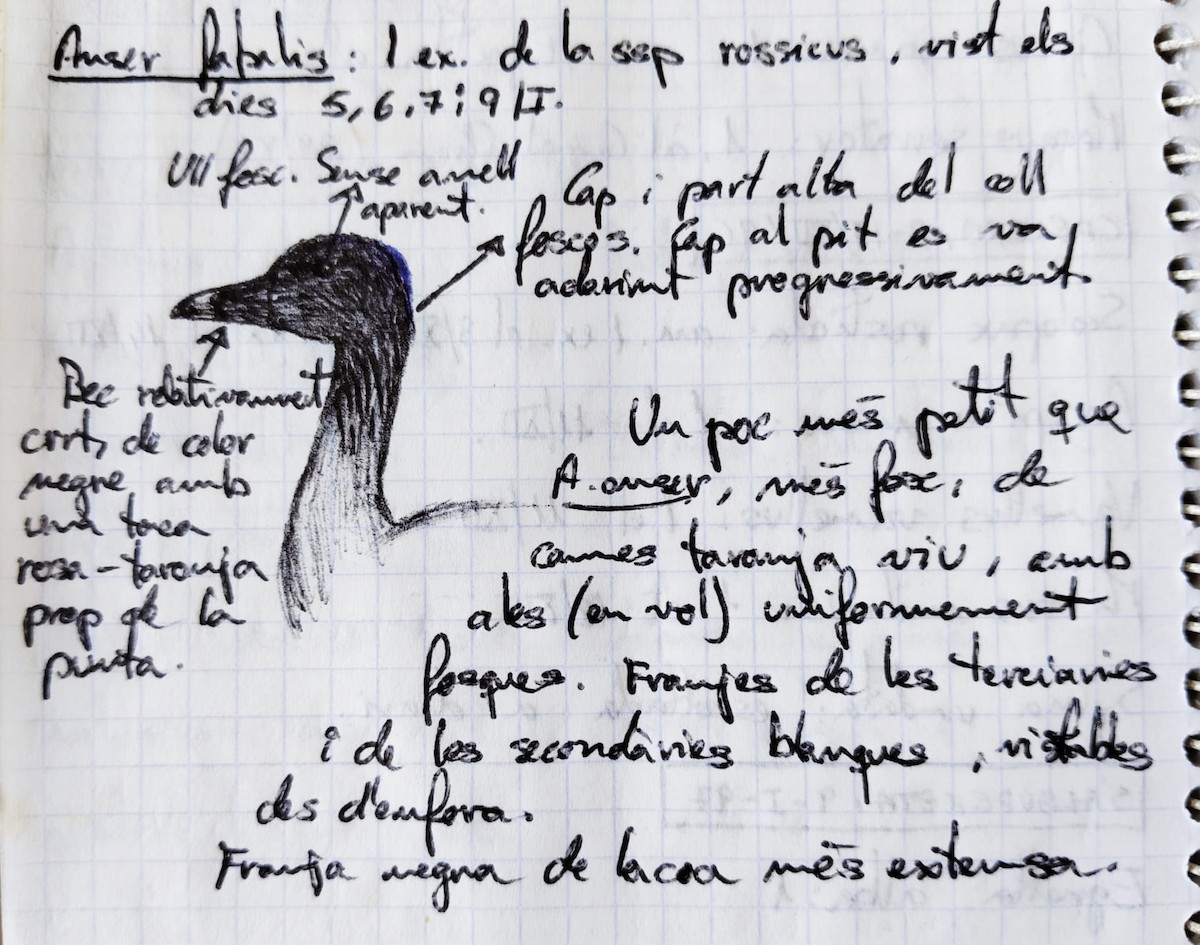 Anser fabalis: 1 ex. de la ssp rossicus, vist els
dies 5, 6, 7 i 9/I.
Ull fosc. Sense anell
aparent.
Cap i part alta del coll
foscos. Cap al pit es va
aclarint progressivament.
Bec relativament
curt, de color
negre, amb
una taca
rosa-taronja
prop de la
punta.
Un poc més petit que
A. anser, més fosc, de
cames taronja viu, amb
ales (en vol) uniformement
fosques. Franjes de les terciaries
i de les secondàries blanques, visibles
des d'enfora.
Franja negra de la coa més extensa.